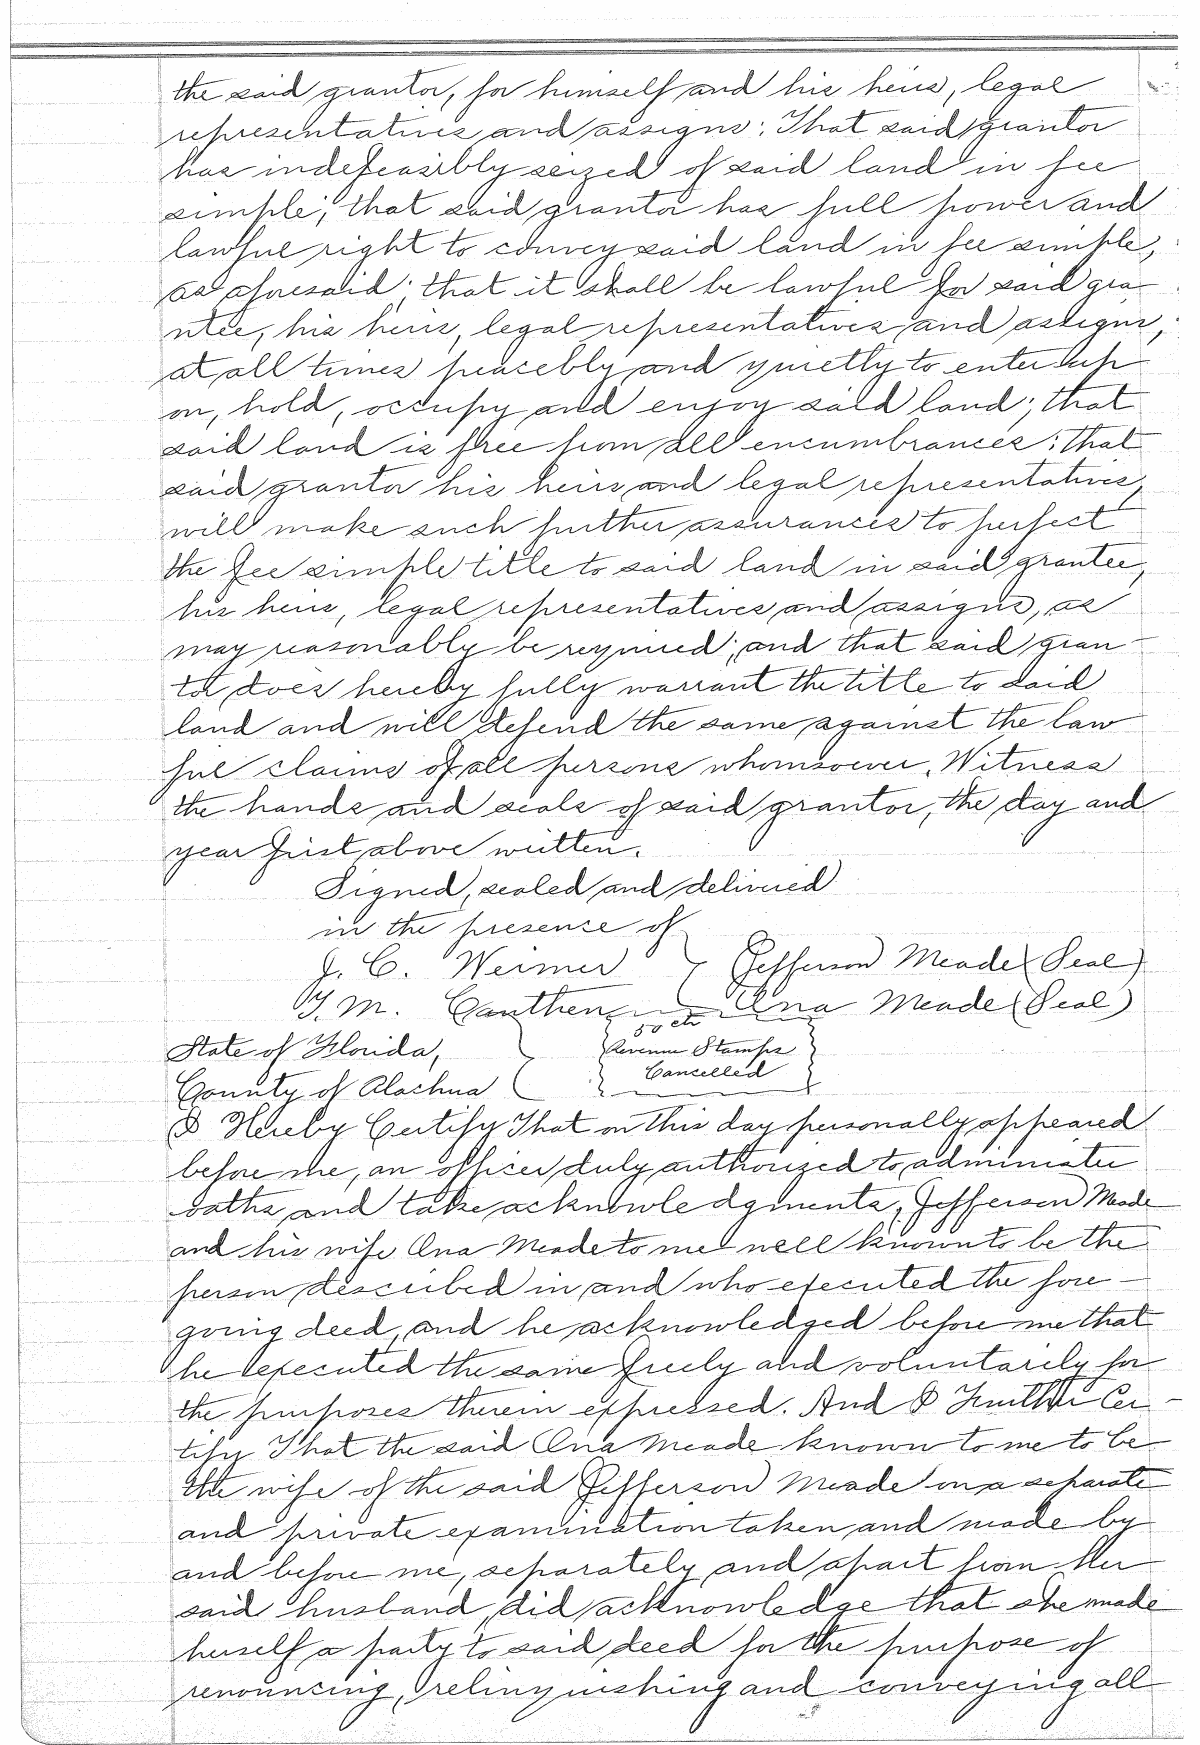 the said grantor, for himself and his heirs, legal
representatives and assigns: That said grantor
has indefeasibly seized of said land in fee
simple; that said grantor has full power and
lawful right to convey said land in fee simple,
as aforesaid; that it shall be lawful for said gra
ntee, his heirs, legal representatives and assigns,
at all times peacebly and quietly to enter up
on, hold, occupy and enjoy said land; that
said land is free from all encumbrances; that
said grantor his heirs and legal representatives,
will make such further assurances to perfect
the fee simple title to said land in said grantee,
his heirs, legal representatives and assigns, as
may reasonably be required; and that said gran-
tor does hereby fully warrant the title to said
land and will defend the same against the law
ful claims of all persons whomsoever. Witness
the hands and seals of said grantor, the day and
year first above written.
Signed, sealed and delivered
in the presence of
J. C. Weimer } Jefferson Meade (Seal)
T. M. Cauthen } Ona Meade (Seal)
50 cts
State of Florida, } Revenue Stamps
County of Alachua } Cancelled
I Hereby Certify That on this day personally appeared
before me, an officer duly authorized to administer
oaths and take acknowledgments, Jefferson Meade
and his wife Ona Meade to me well known to be the
person described in and who executed the fore-
going deed, and he acknowledged before me that
he executed the same freely and voluntarily for
the purposes therein expressed. And I Further Cer-
tify That the said Ona Meade known to me to be
the wife of the said Jefferson Meade on a separate
and private examination taken and made by
and before me, separately and apart from her
said husband, did acknowledge that she made
herself a party to said deed for the purpose of
renouncing, relinquishing and conveying all